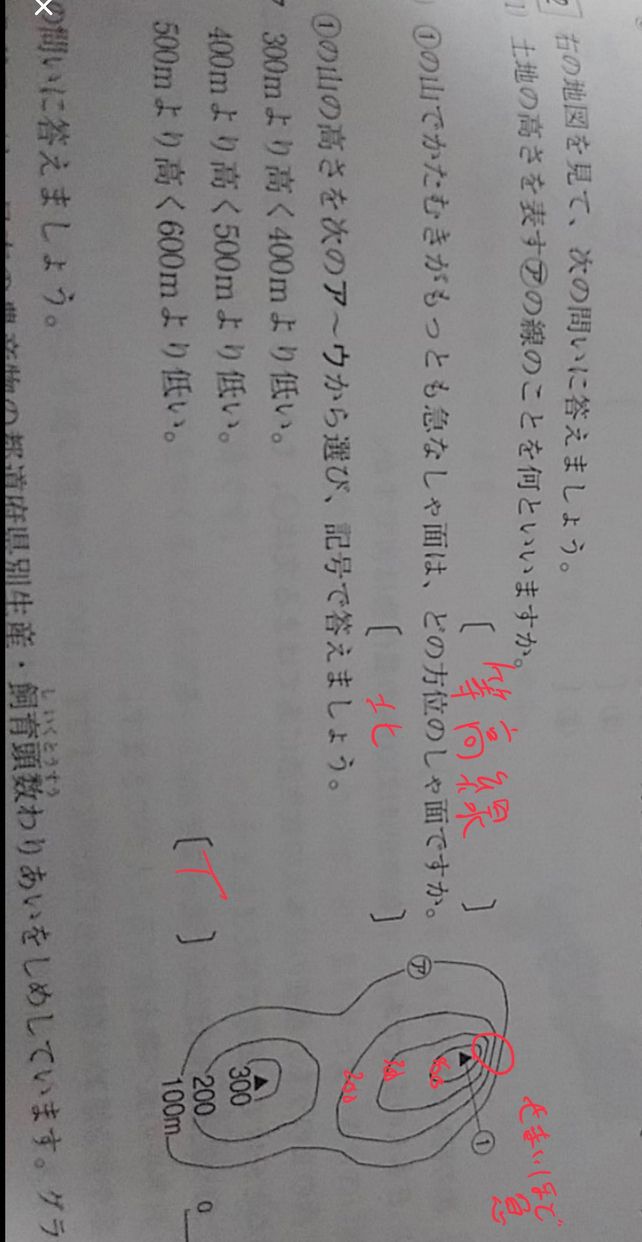 2 右の地図を見て、次の問いに答えましょう。
1) 土地の高さを表す㋐の線のことを何といいますか。
〔 等高線 〕
) ①の山でかたむきがもっとも急なしゃ面は、どの方位のしゃ面ですか。
〔 北 〕
①の山の高さを次のア～ウから選び、記号で答えましょう。
300mより高く400mより低い。
400mより高く500mより低い。
500mより高く600mより低い。
〔 ア 〕
㋐
①
せまいほど
急
200
300
200
100m
0
の問いに答えましょう。
の農産物の都道府県別生産・飼育頭数わりあいをしめしています。グラ
しいくとうすう